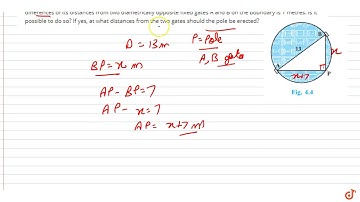 differences of its distances from two diametrically opposite fixed gates A and B on the boundary is 7 metres. Is it
possible to do so? If yes, at what distances from the two gates should the pole be erected?
D = 13m
P = Pole
A, B gate
BP = x m
AP - BP = 7
AP - x = 7
AP = x+7 m
B
13
x
A
P
x+7
Fig. 4.4